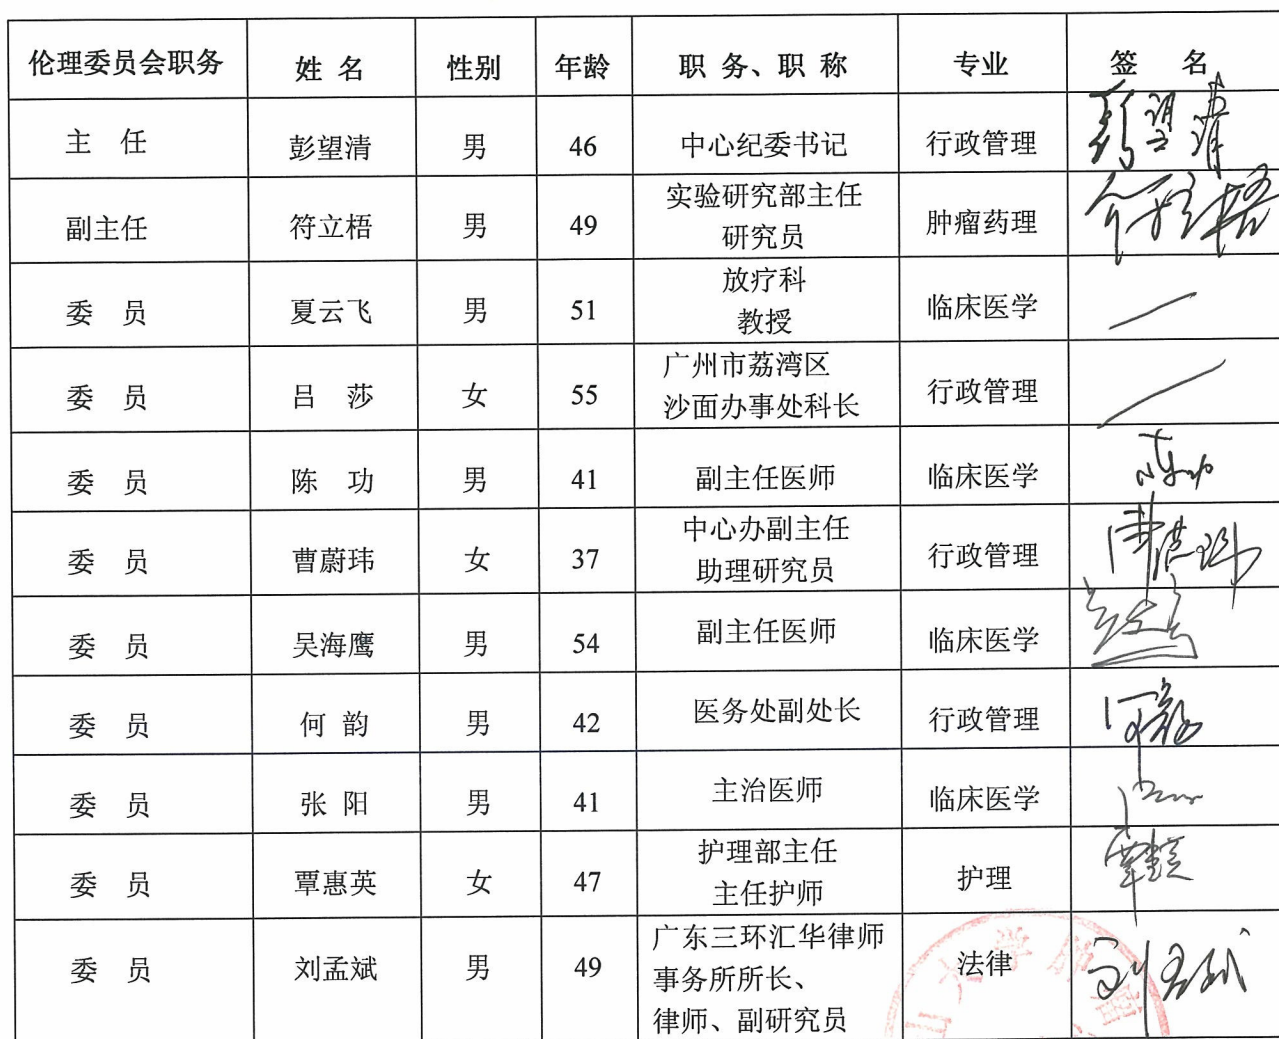 伦理委员会职务 姓 名 性别 年龄 职 务、职 称 专业 签 名
主 任 彭望清 男 46 中心纪委书记 行政管理 彭望清
副主任 符立梧 男 49 实验研究部主任 肿瘤药理 符立梧
研究员
委 员 夏云飞 男 51 放疗科 临床医学
教授
委 员 吕 莎 女 55 广州市荔湾区 行政管理
沙面办事处科长
委 员 陈 功 男 41 副主任医师 临床医学 陈功
委 员 曹蔚玮 女 37 中心办副主任 行政管理 曹蔚玮
助理研究员
委 员 吴海鹰 男 54 副主任医师 临床医学
委 员 何 韵 男 42 医务处副处长 行政管理 何韵
委 员 张 阳 男 41 主治医师 临床医学
委 员 覃惠英 女 47 护理部主任 护理 覃惠英
主任护师
委 员 刘孟斌 男 49 广东三环汇华律师 法律 刘孟斌
事务所所长、
律师、副研究员
山大学肿瘤